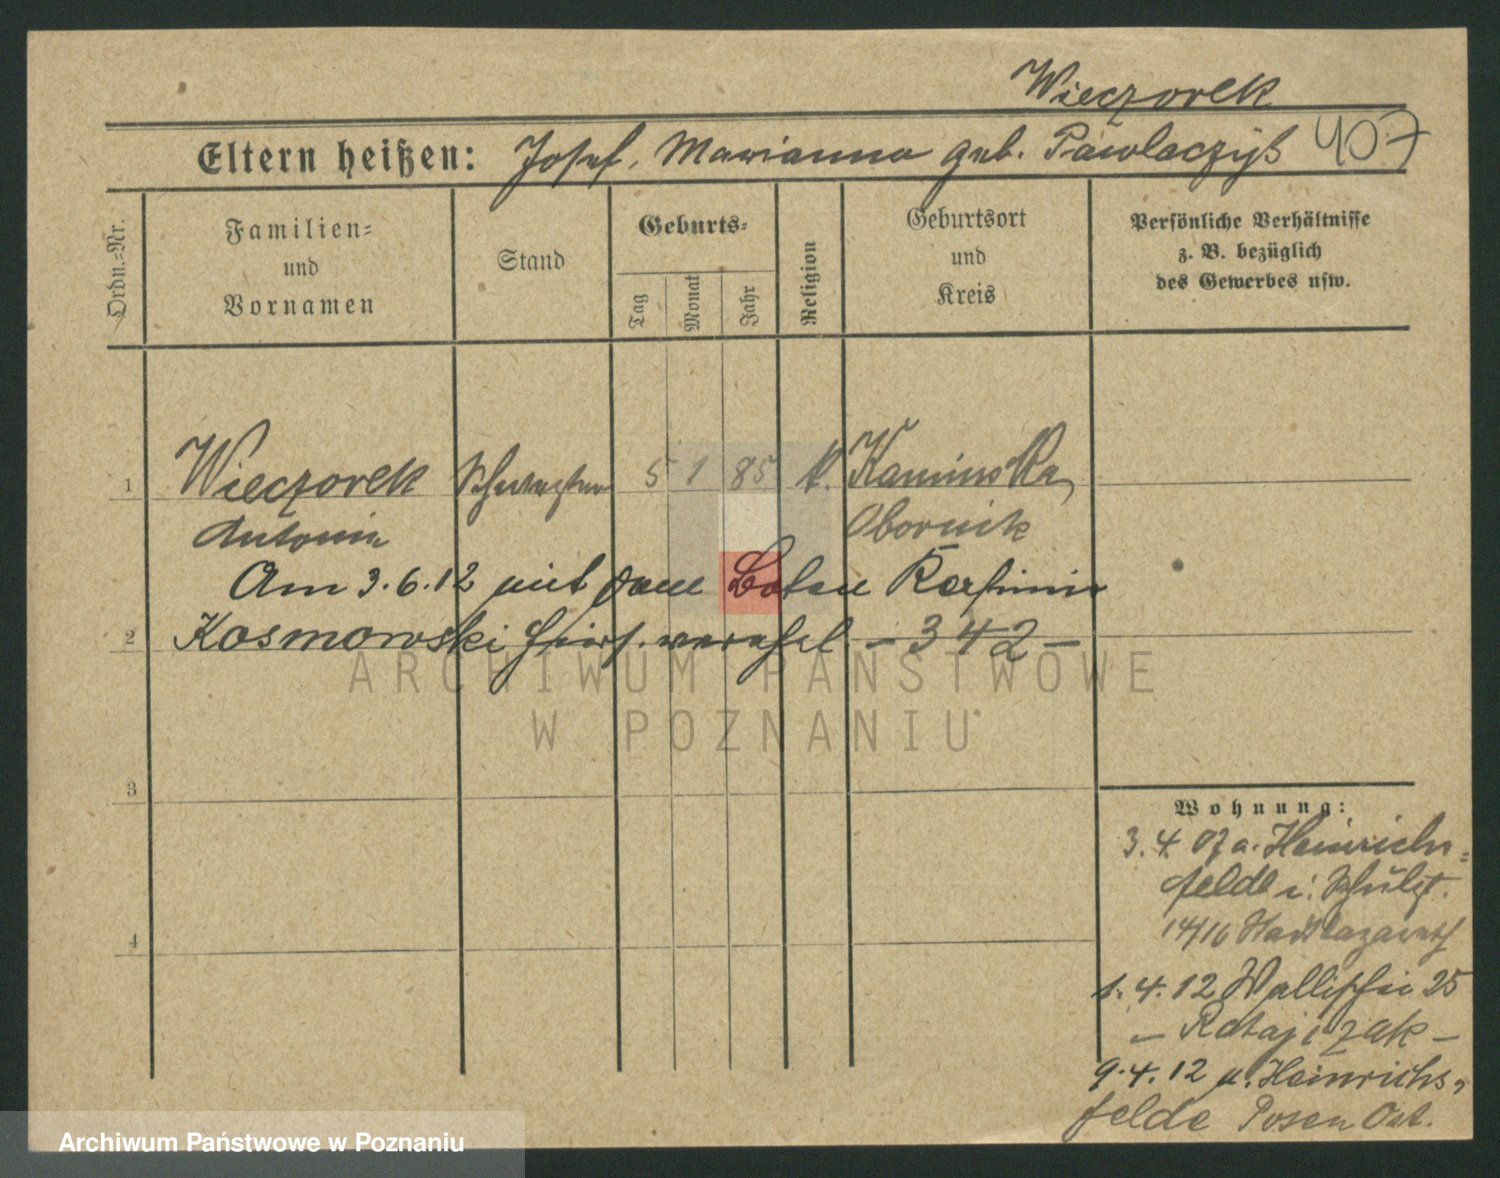 Wieczorek
Eltern heißen: Josef, Marianna geb. Pawlaczyk 407
Ordn.-Nr.
Familien-
und
Vornamen
Stand
Geburts-
Tag
Monat
Jahr
Religion
Geburtsort
und
Kreis
Persönliche Verhältnisse
z. B. bezüglich
des Gewerbes usw.
1 Wieczorek 5 1 85 k. Kaminska,
Antonie Obornik
Am 3.6.12 mit dem Boten Kasimir
2 Kosmowski hier verehel. - 342 -
3
4
Wohnung:
3.4.07 a. Heinrichs-
felde i.
14/10 Stadtlazareth
1.4.12 Wallischei 25
- Ratajczak -
9.4.12 n. Heinrichs-
felde Posen Ost.
ARCHIWUM PAŃSTWOWE
W POZNANIU
Archiwum Państwowe w Poznaniu